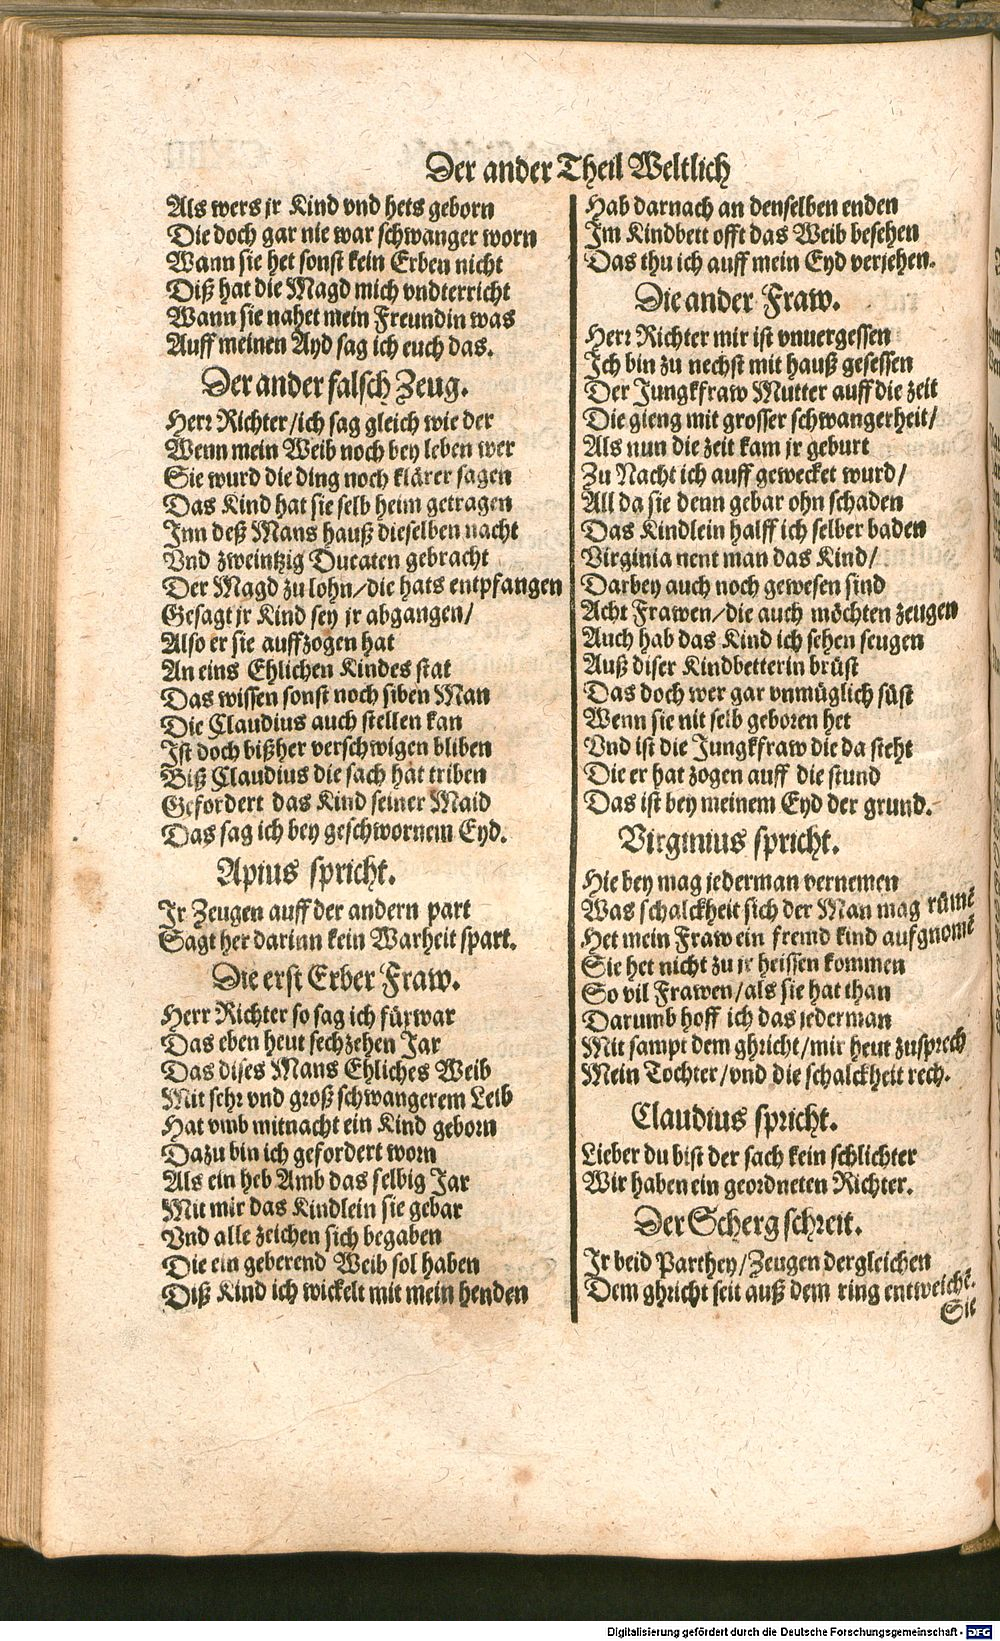 Der ander Theil Weltlich
Als wers jr Kind vnd hets geborn
Die doch gar nie war schwanger worn
Wann sie het sonst kein Erben nicht
Diß hat die Magd mich vndterricht
Wann sie nahet mein Freundin was
Auff meinen Ayd sag ich euch das.
Der ander falsch Zeug.
Herr Richter/ich sag gleich wie der
Wenn mein Weib noch bey leben wer
Sie wurd die ding noch klärer sagen
Das Kind hat sie selb heim getragen
Inn deß Mans hauß dieselben nacht
Vnd zweintzig Ducaten gebracht
Der Magd zu lohn/die hats entpfangen
Gesagt jr Kind sey jr abgangen/
Also er sie auffzogen hat
An eins Ehlichen Kindes stat
Das wissen sonst noch siben Man
Die Claudius auch stellen kan
Ist doch bißher verschwigen bliben
Biß Claudius die sach hat triben
Gefordert das Kind seiner Maid
Das sag ich bey geschwornem Eyd.
Apius spricht.
Ir Zeugen auff der andern part
Sagt her darinn kein Warheit spart.
Die erst Erber Fraw.
Herr Richter so sag ich fürwar
Das eben heut sechzehen Jar
Das dises Mans Ehliches Weib
Mit sehr vnd groß schwangerem Leib
Hat vmb mitnacht ein Kind geborn
Dazu bin ich gefordert worn
Als ein heb Amb das selbig Jar
Mit mir das Kindlein sie gebar
Vnd alle zeichen sich begaben
Die ein geberend Weib sol haben
Diß Kind ich wickelt mit mein henden
Hab darnach an denselben enden
Im Kindbett offt das Weib besehen
Das thu ich auff mein Eyd verjehen.
Die ander Fraw.
Herr Richter mir ist vnuergessen
Ich bin zu nechst mit hauß gesessen
Der Jungkfraw Mutter auff die zeit
Die gieng mit grosser schwangerheit/
Als nun die zeit kam jr geburt
Zu Nacht ich auff gewecket wurd/
All da sie denn gebar ohn schaden
Das Kindlein halff ich selber baden
Virginia nent man das Kind/
Darbey auch noch gewesen sind
Acht Frawen/die auch möchten zeugen
Auch hab das Kind ich sehen seugen
Auß diser Kindbetterin brüst
Das doch wer gar vnmüglich süst
Wenn sie nit selb geboren het
Vnd ist die Jungkfraw die da steht
Die er hat zogen auff die stund
Das ist bey meinem Eyd der grund.
Virginius spricht.
Hie bey mag jederman vernemen
Was schalckheit sich der Man mag rümē
Het mein Fraw ein fremd kind aufgnomē
Sie het nicht zu jr heissen kommen
So vil Frawen/als sie hat than
Darumb hoff ich das jederman
Mit sampt dem ghricht/mir heut zusprech
Mein Tochter/vnd die schalckheit rech.
Claudius spricht.
Lieber du bist der sach kein schlichter
Wir haben ein geordneten Richter.
Der Scherg schreit.
Ir beid Parthey/Zeugen dergleichen
Dem ghricht seit auß dem ring entweichē.
Sie
Digitalisierung gefördert durch die Deutsche Forschungsgemeinschaft - DFG